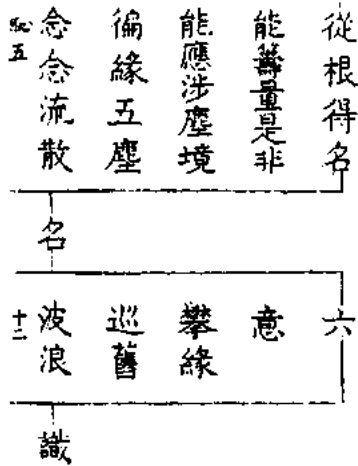 從根得名
能籌量是非
能應涉塵境
徧緣五塵
念念流散
五
名
六
意
攀緣
巡舊
波浪
十二
識